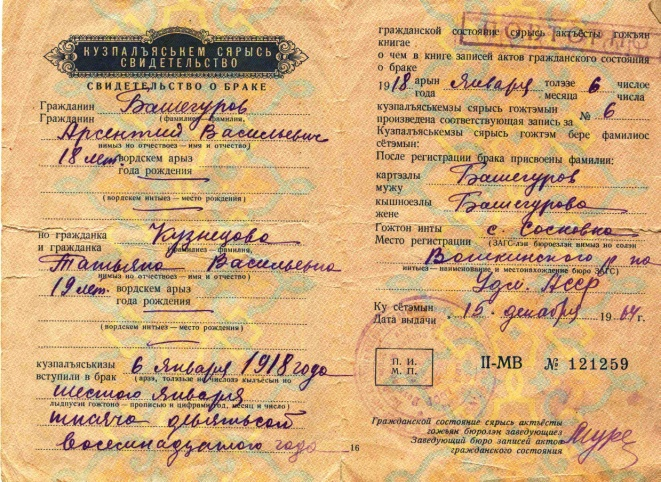 КУЗПАЛЪЯСЬКЕМ СЯРЫСЬ
СВИДЕТЕЛЬСТВО
СВИДЕТЕЛЬСТВО О БРАКЕ
Гражданин Башегуров
Гражданин (фамилиез — фамилия,
Арсентий Васильевич
нимыз но отчествоез — имя и отчество)
18 лет. вордскем арыз
года рождения
(вордскем интыез — место рождения)
но гражданка Кузнецова
и гражданка (фамилиез — фамилия,
Татьяна Васильевна
нимыз но отчествоез — имя и отчество)
19 лет. вордскем арыз
года рождения
(вордскем интыез — место рождения)
кузпалъяськизы 6 января 1918 года
вступили в брак (арзэ, толэзьзе но числозэ кылъёсын но
шестого января
лыдпусэн гожтоно — прописью и цифрами год, месяц и число)
тысяча девятьсот
восемнадцатого года
16
гражданской состояние сярысь актъёсты гожъян
книгае
о чем в книге записей актов гражданского состояния
о браке
1918 арын января толэзе 6 числое
года месяца числа
кузпалъяськемзы сярысь гожтэмын
произведена соответствующая запись за № 6
Кузпалъяськемзы сярысь гожтэм бере фамилиос
сётэмын:
После регистрации брака присвоены фамилии:
картэзлы Башегуров
мужу
кышноезлы Башегурова
жене
Гожтон инты с. Сосновка
Место регистрации (ЗАГС-лэн бюроезлэн нимыз но
Вотkинского р-на
интыез — наименование и местонахождение бюро ЗАГС)
Удм. АССР
Ку сётэмын 15 декабря 1964 г.
Дата выдачи
П. И.
М. П.
II-МВ № 121259
Гражданской состояние сярысь актъёсты
гожъян бюролэн заведующиез
Заведующий бюро записей актов
гражданского состояния